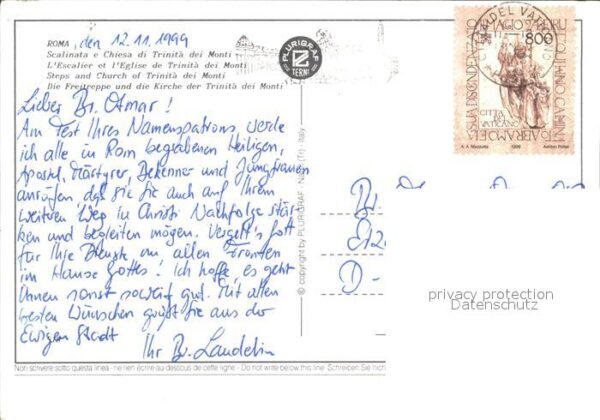 ROMA, den 12.11.1999
Scalinata e Chiesa di Trinità dei Monti
L'Escalier et l'Eglise de Trinità dei Monti
Steps and Church of Trinità dei Monti
Die Freitreppe und die Kirche der Trinità dei Monti
PLURIGRAF
TERNI
Lieber Br. Otmar!
Am Fest Ihres Namenspatrons, werde
ich alle in Rom begrabenen Heiligen,
Apostel, Märtyrer, Bekenner und Jungfrauen
anrufen, daß sie Sie auch auf Ihrem
weiteren Weg in Christi Nachfolge stär-
ken und begleiten mögen. Vergelt's Gott
für Ihre Dienste an allen Fronten
im Hause Gottes! Ich hoffe, es geht
Ihnen sonst soweit gut. Mit allen
besten Wünschen grüßt Sie aus der
Ewigen Stadt
Ihr Br. Landelin
© copyright by PLURIGRAF - Narni (Tr) - Italy
800
CITTÀ DEL VATICANO
1998
Br.
D -
privacy protection
Datenschutz
Non scrivere sotto questa linea - ne rien écrire au dessous de cette ligne - Do not write below this line. Schreiben Sie nich